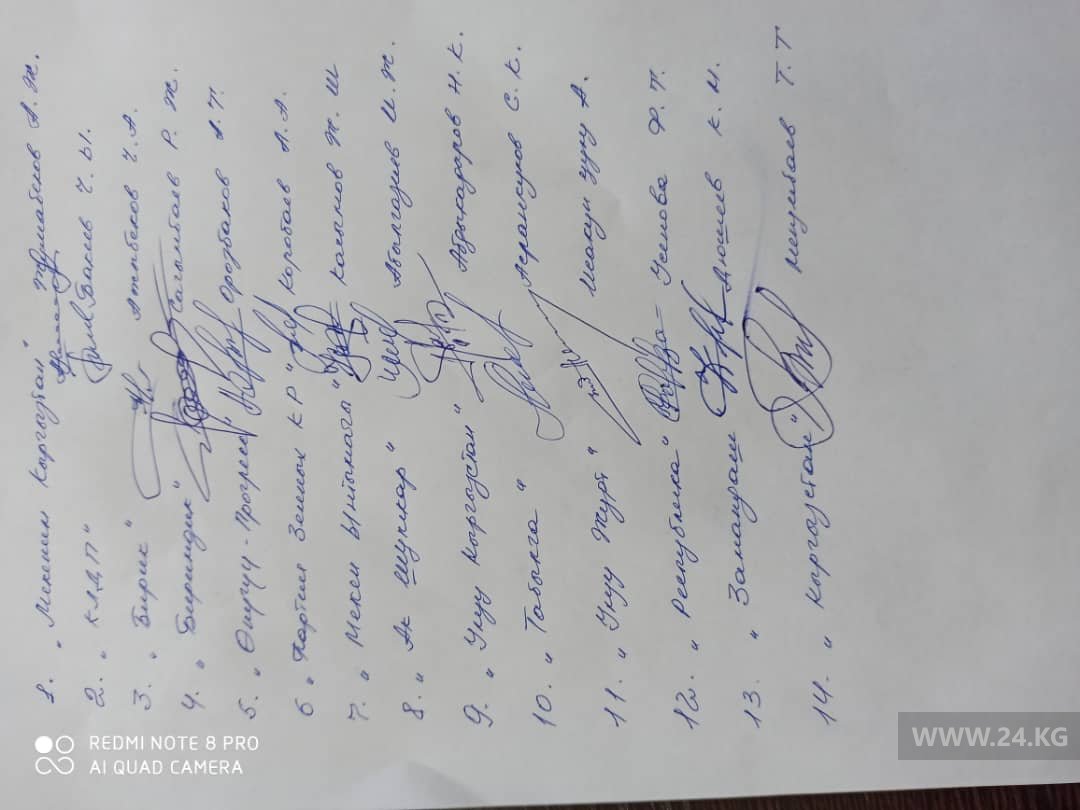 1. "Мекеним Кыргызстан" Жумабеков А.Ж.
2. "КЛДП" Басаев Ч.Ы.
3. "Бирик" Атабеков Ч.А.
4. "Биримдик" Сагымбаев Р.Ж.
5. "Өнүгүү-Прогресс" Орозбаков А.Т.
6 "Партия Зеленых КР" Коробаев А.А.
7. "Мекен Ынтымагы" Касымов Ж.Ш
8. "Ак шумкар" Абылгазиев И.Ж.
9. "Улуу Кыргызстан" Абдыкадаров Н.К.
10. "Табылга" Асранкулов С.К.
11. "Улуу Журт" уулу А.
12. "Республика" Усенова Ф.П.
13. "Замандаш Дюшеев К.М.
14. "Кыргызстан" Т.Т
REDMI NOTE 8 PRO
AI QUAD CAMERA
WWW.24.KG